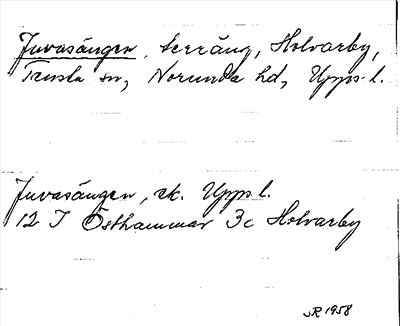 Juvasängen, terräng, Holvarby,
Tensta sn, Norunda hd, Upps. l.
Juvasängen, ek. Upps l.
12 I Östhammar 3c Holvarby
JR 1958